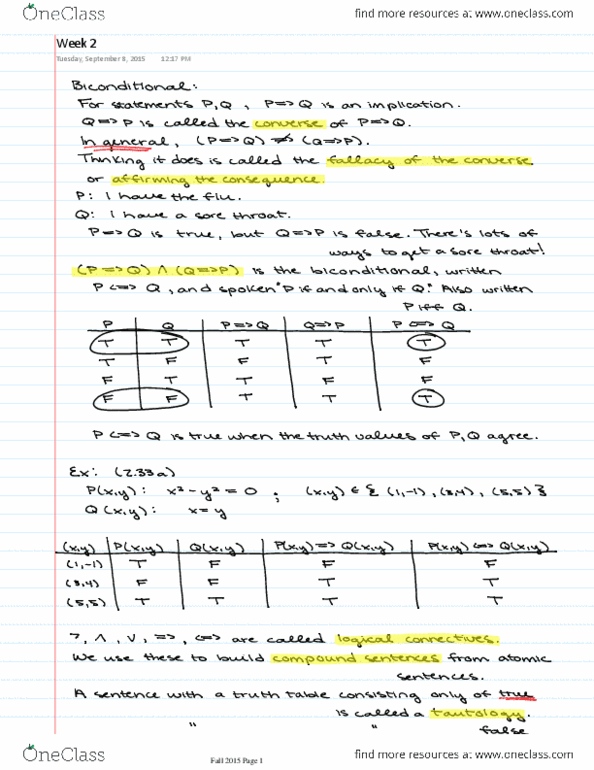 OneClass find more resources at www.oneclass.com
Week 2
Tuesday, September 8, 2015 12:37 PM
Biconditional:
For statements P,Q , P=>Q is an implication.
Q=>P is called the converse of P=>Q.
In general, (P=>Q) ≠> (Q=>P).
Thinking it does is called the fallacy of the converse
or affirming the consequence.
P: I have the flu.
Q: I have a sore throat.
P=>Q is true, but Q=>P is false. There's lots of
ways to get a sore throat!
(P=>Q) ∧ (Q=>P) is the biconditional, written
P<=>Q, and spoken "P if and only if Q." Also written
P iff Q.
P Q P=>Q Q=>P P<=>Q
T T T T T
T F F T F
F T T F F
F F T T T
P<=>Q is true when the truth values of P,Q agree.
Ex: (2.33a)
P(x,y): x²-y²=0 ; (x,y) ∈ {(1,-1),(3,4),(5,5)}
Q(x,y): x=y
(x,y) P(x,y) Q(x,y) P(x,y)=>Q(x,y) P(x,y)<=>Q(x,y)
(1,-1) T F F F
(3,4) F F T T
(5,5) T T T T
¬, ∧, ∨, =>, <=> are called logical connectives.
We use these to build compound sentences from atomic
sentences.
A sentence with a truth table consisting only of true
is called a tautology.
" " false
Fall 2015 Page 1
OneClass find more resources at www.oneclass.com